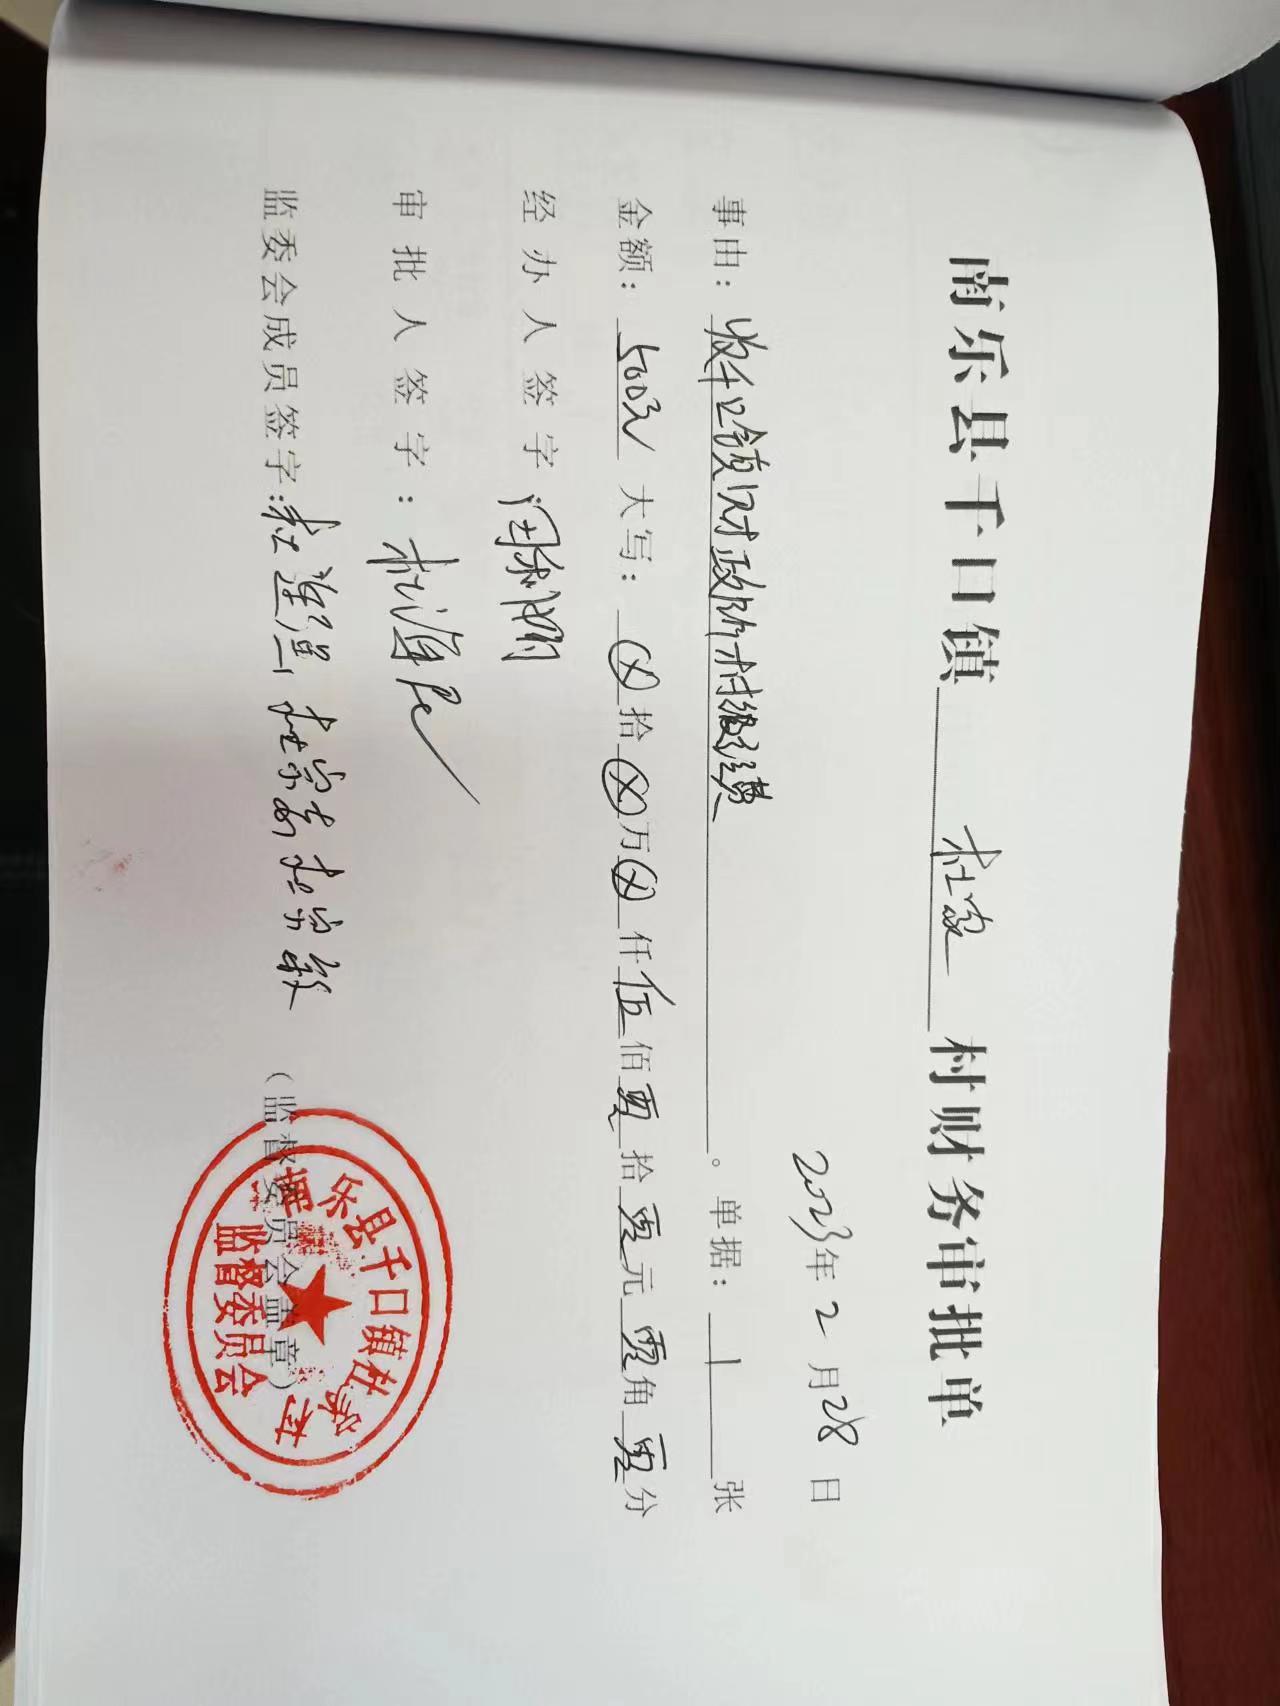 南乐县千口镇 杜家 村财务审批单
2023年2月28日
事由：收千口镇财政所村级经费。单据：1张
金额：500元 大写：⊗拾⊗万⊗仟伍佰零拾零元零角零分
经办人签字
审批人签字：杜海民
监委会成员签字：杜连 杜宗 杜宗敏 （监督委员会盖章）
南乐县千口镇杜家村
监督委员会